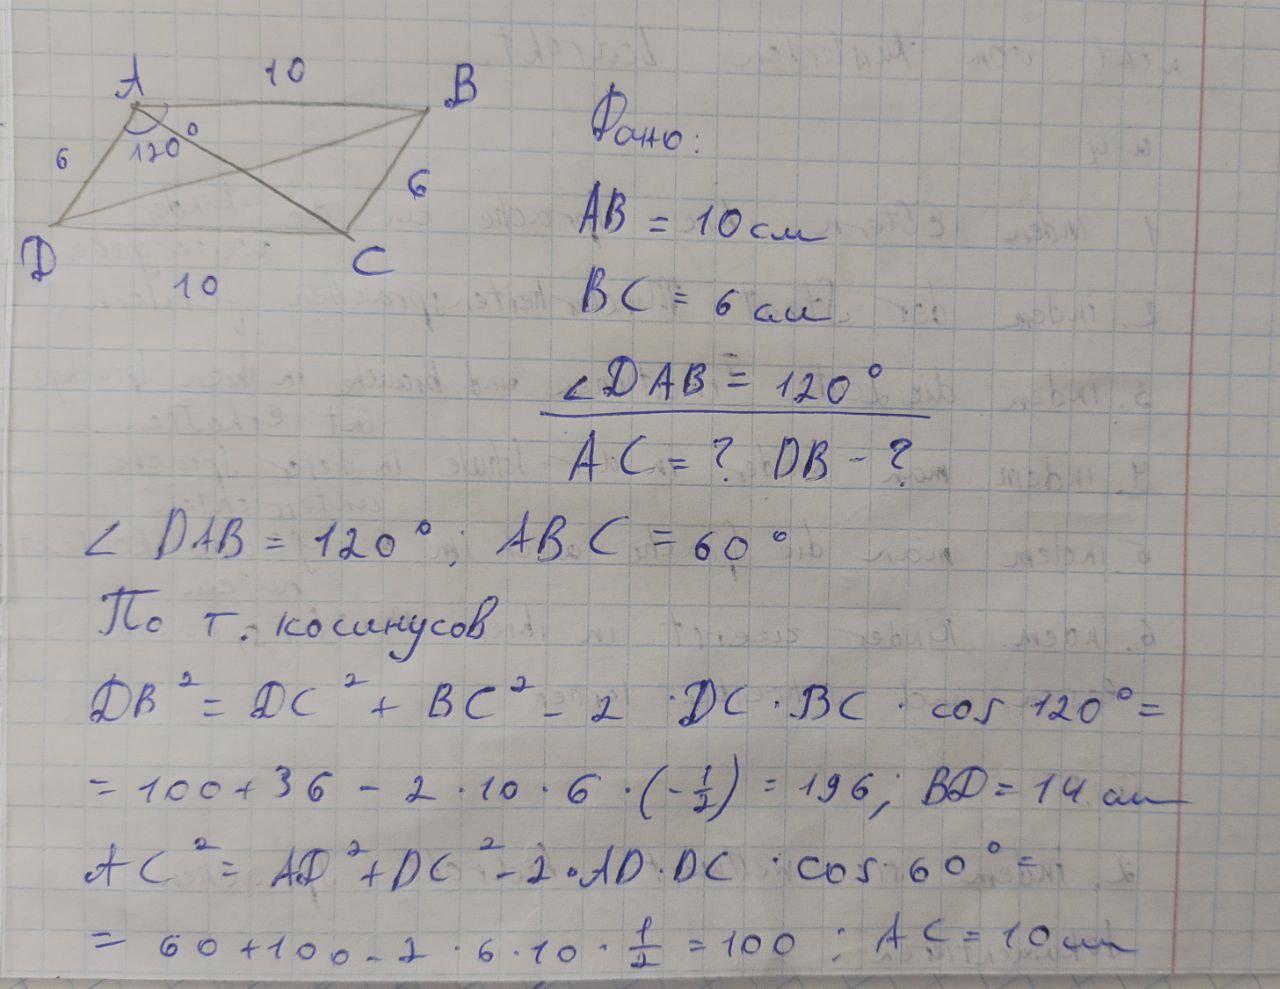 A 10 B
6 120° 6
D 10 C
Дано:
AB = 10 см
BC = 6 см
∠DAB = 120°
AC = ? DB - ?
∠ DAB = 120°; ABC = 60°
По т. косинусов
DB² = DC² + BC² - 2 · DC · BC · cos 120° =
= 100 + 36 - 2 · 10 · 6 · (-1/2) = 196; BD = 14 см
AC² = AD² + DC² - 2 · AD · DC · cos 60° =
= 60 + 100 - 2 · 6 · 10 · 1/2 = 100 ; AC = 10 см